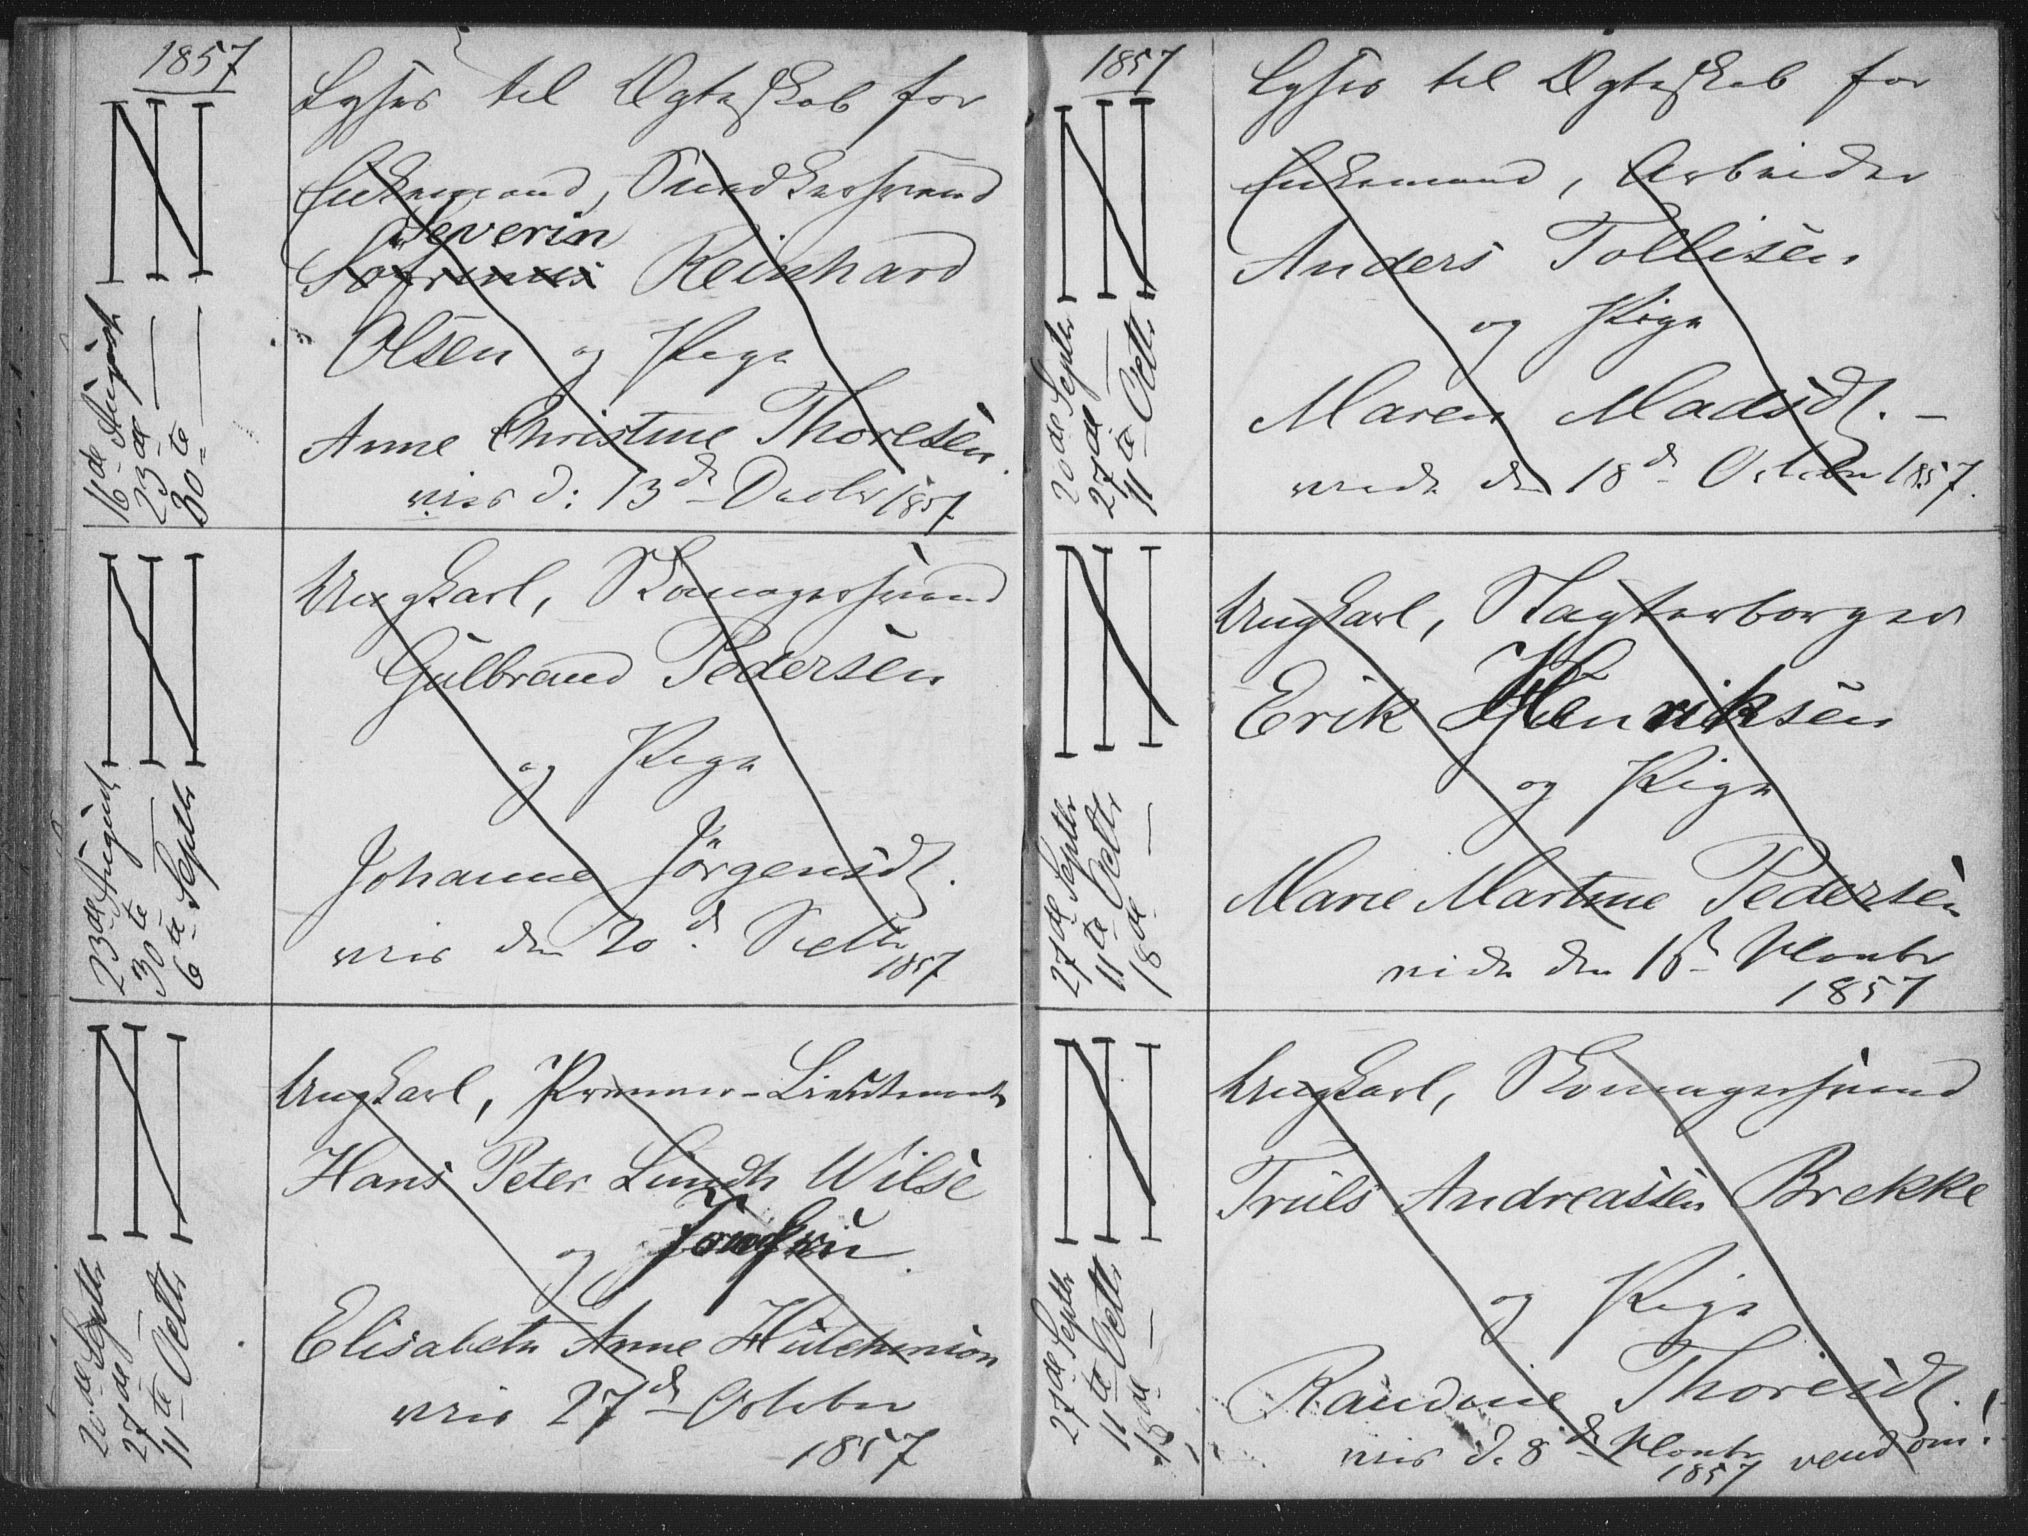 1857
Lyses til Ægteskab for
Enkemand, Smedkersvend
Severin
Sørinus Reinhard
Olsen og Pige
Anne Christine Thoresen.
viet d: 13de Decbr 1857
16de August
23de —
30te —
Ungkarl, Skomagersvend
Gulbrand Pedersen
og Pige
Johanne Jørgensdt.
viet den 20de Septbr
1857
23de August
30te
6te Septbr
Ungkarl, Premier-Lieutenant
Hans Peter Lundh Wilse
og Jomfru
Elisabeth Anne Hutchinson
viet 27de October
1857
20de Septbr
27de —
11te Octbr
1857
Lyses til Ægteskab for
Enkemand, Arbeider
Anders Tollisen
og Pige
Maren Madsdt. —
viede den 18de October 1857.
20de Septbr
27de —
11te Octbr
Ungkarl, Slagterborger
Erik Henriksen
og Pige
Marie Martine Pedersen
viede den Novbr
1857
27de Septbr
11te Octbr
18de —
Ungkarl, Skomagersvend
Truls Andreassen Brekke
og Pige
Randine Thoresdt.
viet d. 8de Novbr vend om!
1857
27de Septbr
11te Octbr
18de —